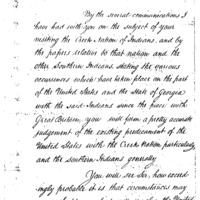 By the several communications I
have had with you on the subject of your
visiting the Creek Nation of Indians, and by
the papers relative to that nation and the
other Southern Indians stating the various
occurrences which have taken place on the part
of the United States and the State of Georgia
with the said Indians since the peace with
Great Britain, you will form a pretty accurate
judgement of the existing predicament of the
United States with the Creek nation particularly
and the southern Indians generally
You will see Sir, how exceed-
ingly probable it is that circumstances may